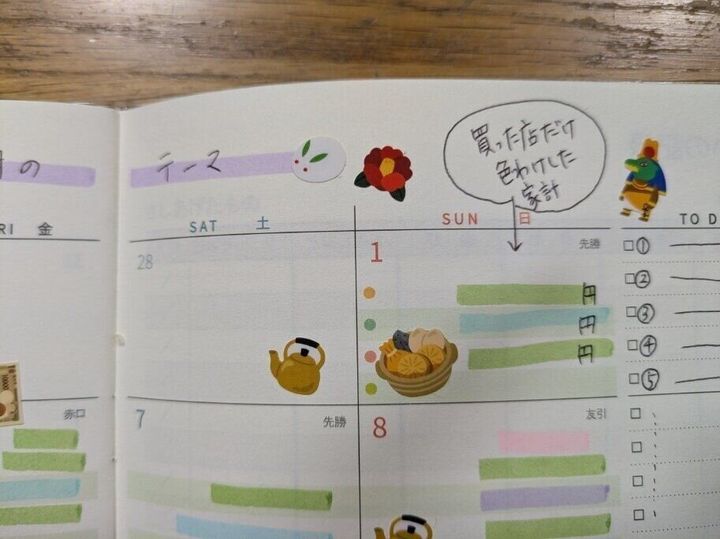 の
テース
買った店だけ
色わけした
家計
RI 金
SAT 土
SUN 日
TO D
28
1
先勝
円
円
円
①
②
③
④
⑤
10000
赤口
7
先勝
8
友引